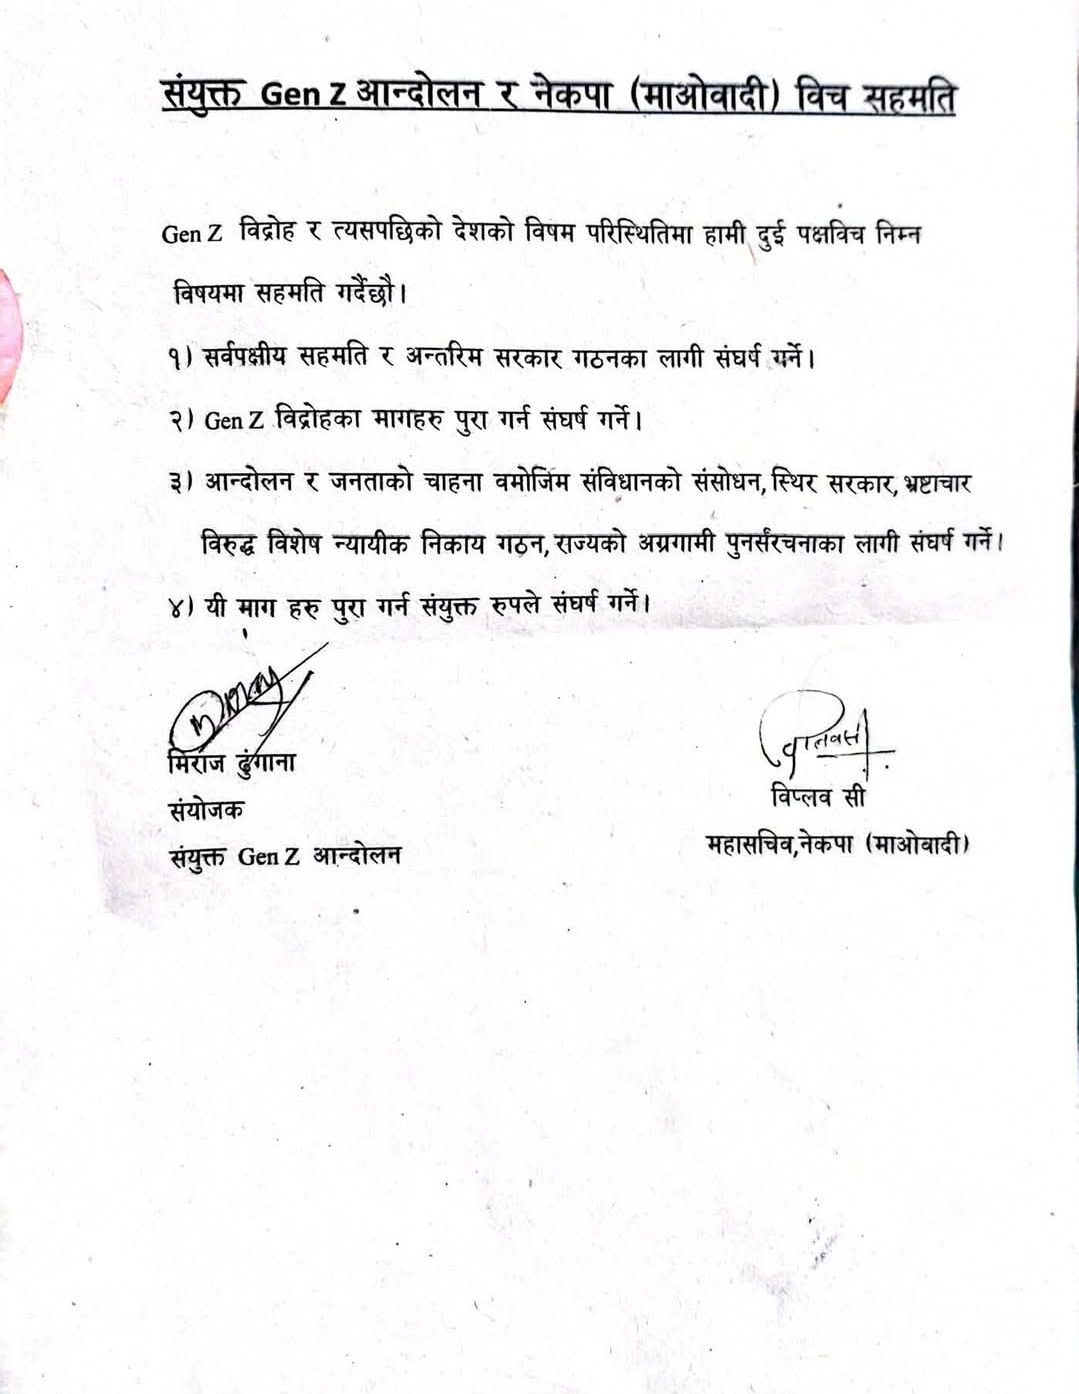 संयुक्त Gen Z आन्दोलन र नेकपा (माओवादी) विच सहमति
Gen Z विद्रोह र त्यसपछिको देशको विषम परिस्थितिमा हामी दुई पक्षविच निम्न
विषयमा सहमति गर्दैछौ।
१) सर्वपक्षीय सहमति र अन्तरिम सरकार गठनका लागी संघर्ष गर्ने।
२) Gen Z विद्रोहका मागहरु पुरा गर्न संघर्ष गर्ने।
३) आन्दोलन र जनताको चाहना वमोजिम संविधानको संसोधन, स्थिर सरकार, भ्रष्टाचार
विरुद्ध विशेष न्यायीक निकाय गठन, राज्यको अग्रगामी पुनर्संरचनाका लागी संघर्ष गर्ने।
४) यी माग हरु पुरा गर्न संयुक्त रुपले संघर्ष गर्ने।
मिराज ढुंगाना
संयोजक
संयुक्त Gen Z आन्दोलन
विप्लव सी
महासचिव,नेकपा (माओवादी)